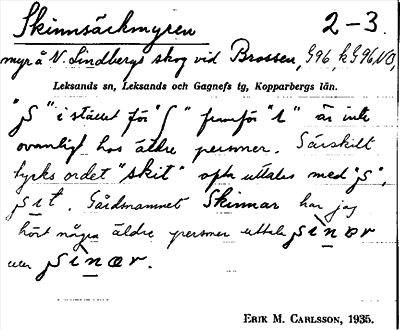 Skinnsäckmyren 2-3.
myr å N. Lindbergs skog vid Brossen, G96, k G96 NO,
Leksands sn, Leksands och Gagnefs tg, Kopparbergs län.
"ʂ" i stället för "ʃ" framför "i" är inte
ovanligt hos äldre personer. Särskilt
tycks ordet "skit" ofta uttalas med "ʂ",
ʂit. Gårdsnamnet Skinnar har jag
hört några äldre personer uttala ʂìnar
eller ʂinær.
ERIK M. CARLSSON, 1935.